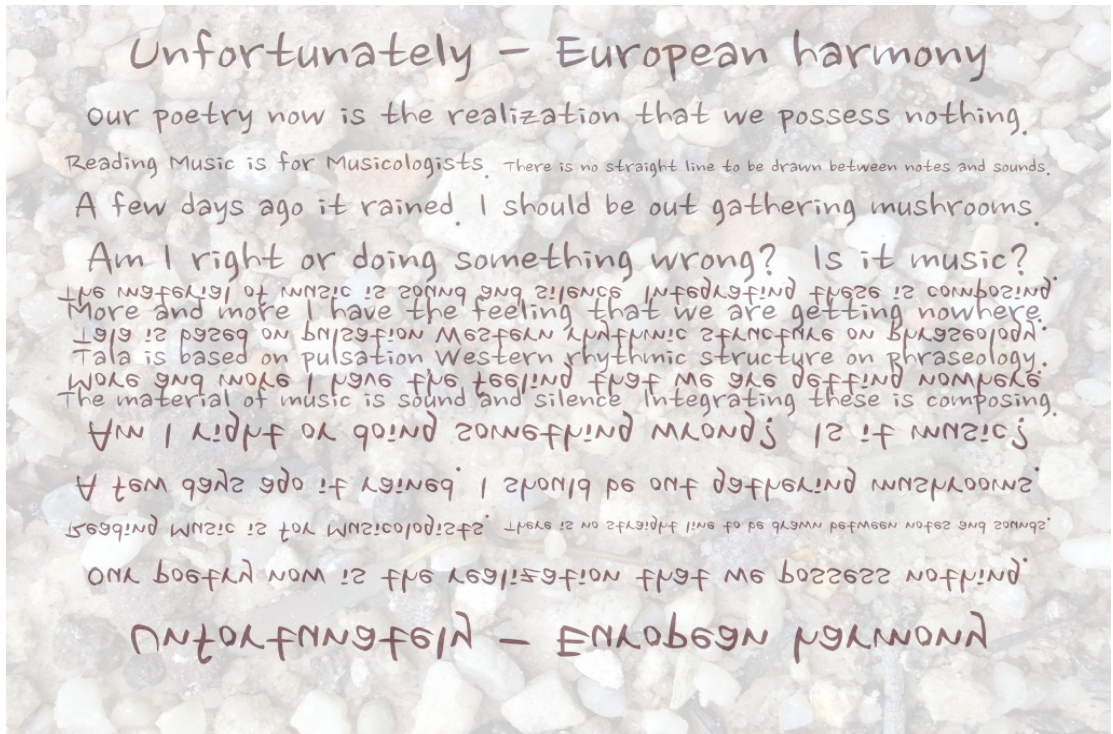 Unfortunately – European harmony
Our poetry now is the realization that we possess nothing.
Reading Music is for Musicologists. There is no straight line to be drawn between notes and sounds.
A few days ago it rained. I should be out gathering mushrooms.
Am I right or doing something wrong? Is it music?
The material of music is sound and silence Integrating these is composing.
More and more I have the feeling that we are getting nowhere.
Tala is based on pulsation Western rhythmic structure on phraseology.
Tala is based on pulsation Western rhythmic structure on phraseology.
More and more I have the feeling that we are getting nowhere.
The material of music is sound and silence Integrating these is composing.
Am I right or doing something wrong? Is it music?
A few days ago it rained. I should be out gathering mushrooms.
Reading Music is for Musicologists. There is no straight line to be drawn between notes and sounds.
Our poetry now is the realization that we possess nothing.
Unfortunately – European harmony